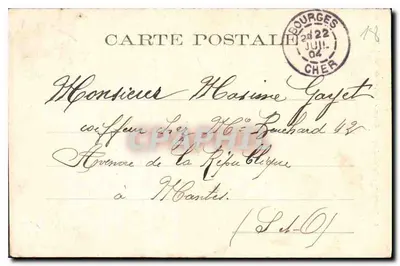 CARTE POSTALE
BOURGES
22
JUIL
04
CHER
18
Monsieur Maxime Gayet
coiffeur chez Mr Bouchard 42
Avenue de la République
à Mantes
(S et O)
CPAPHIL